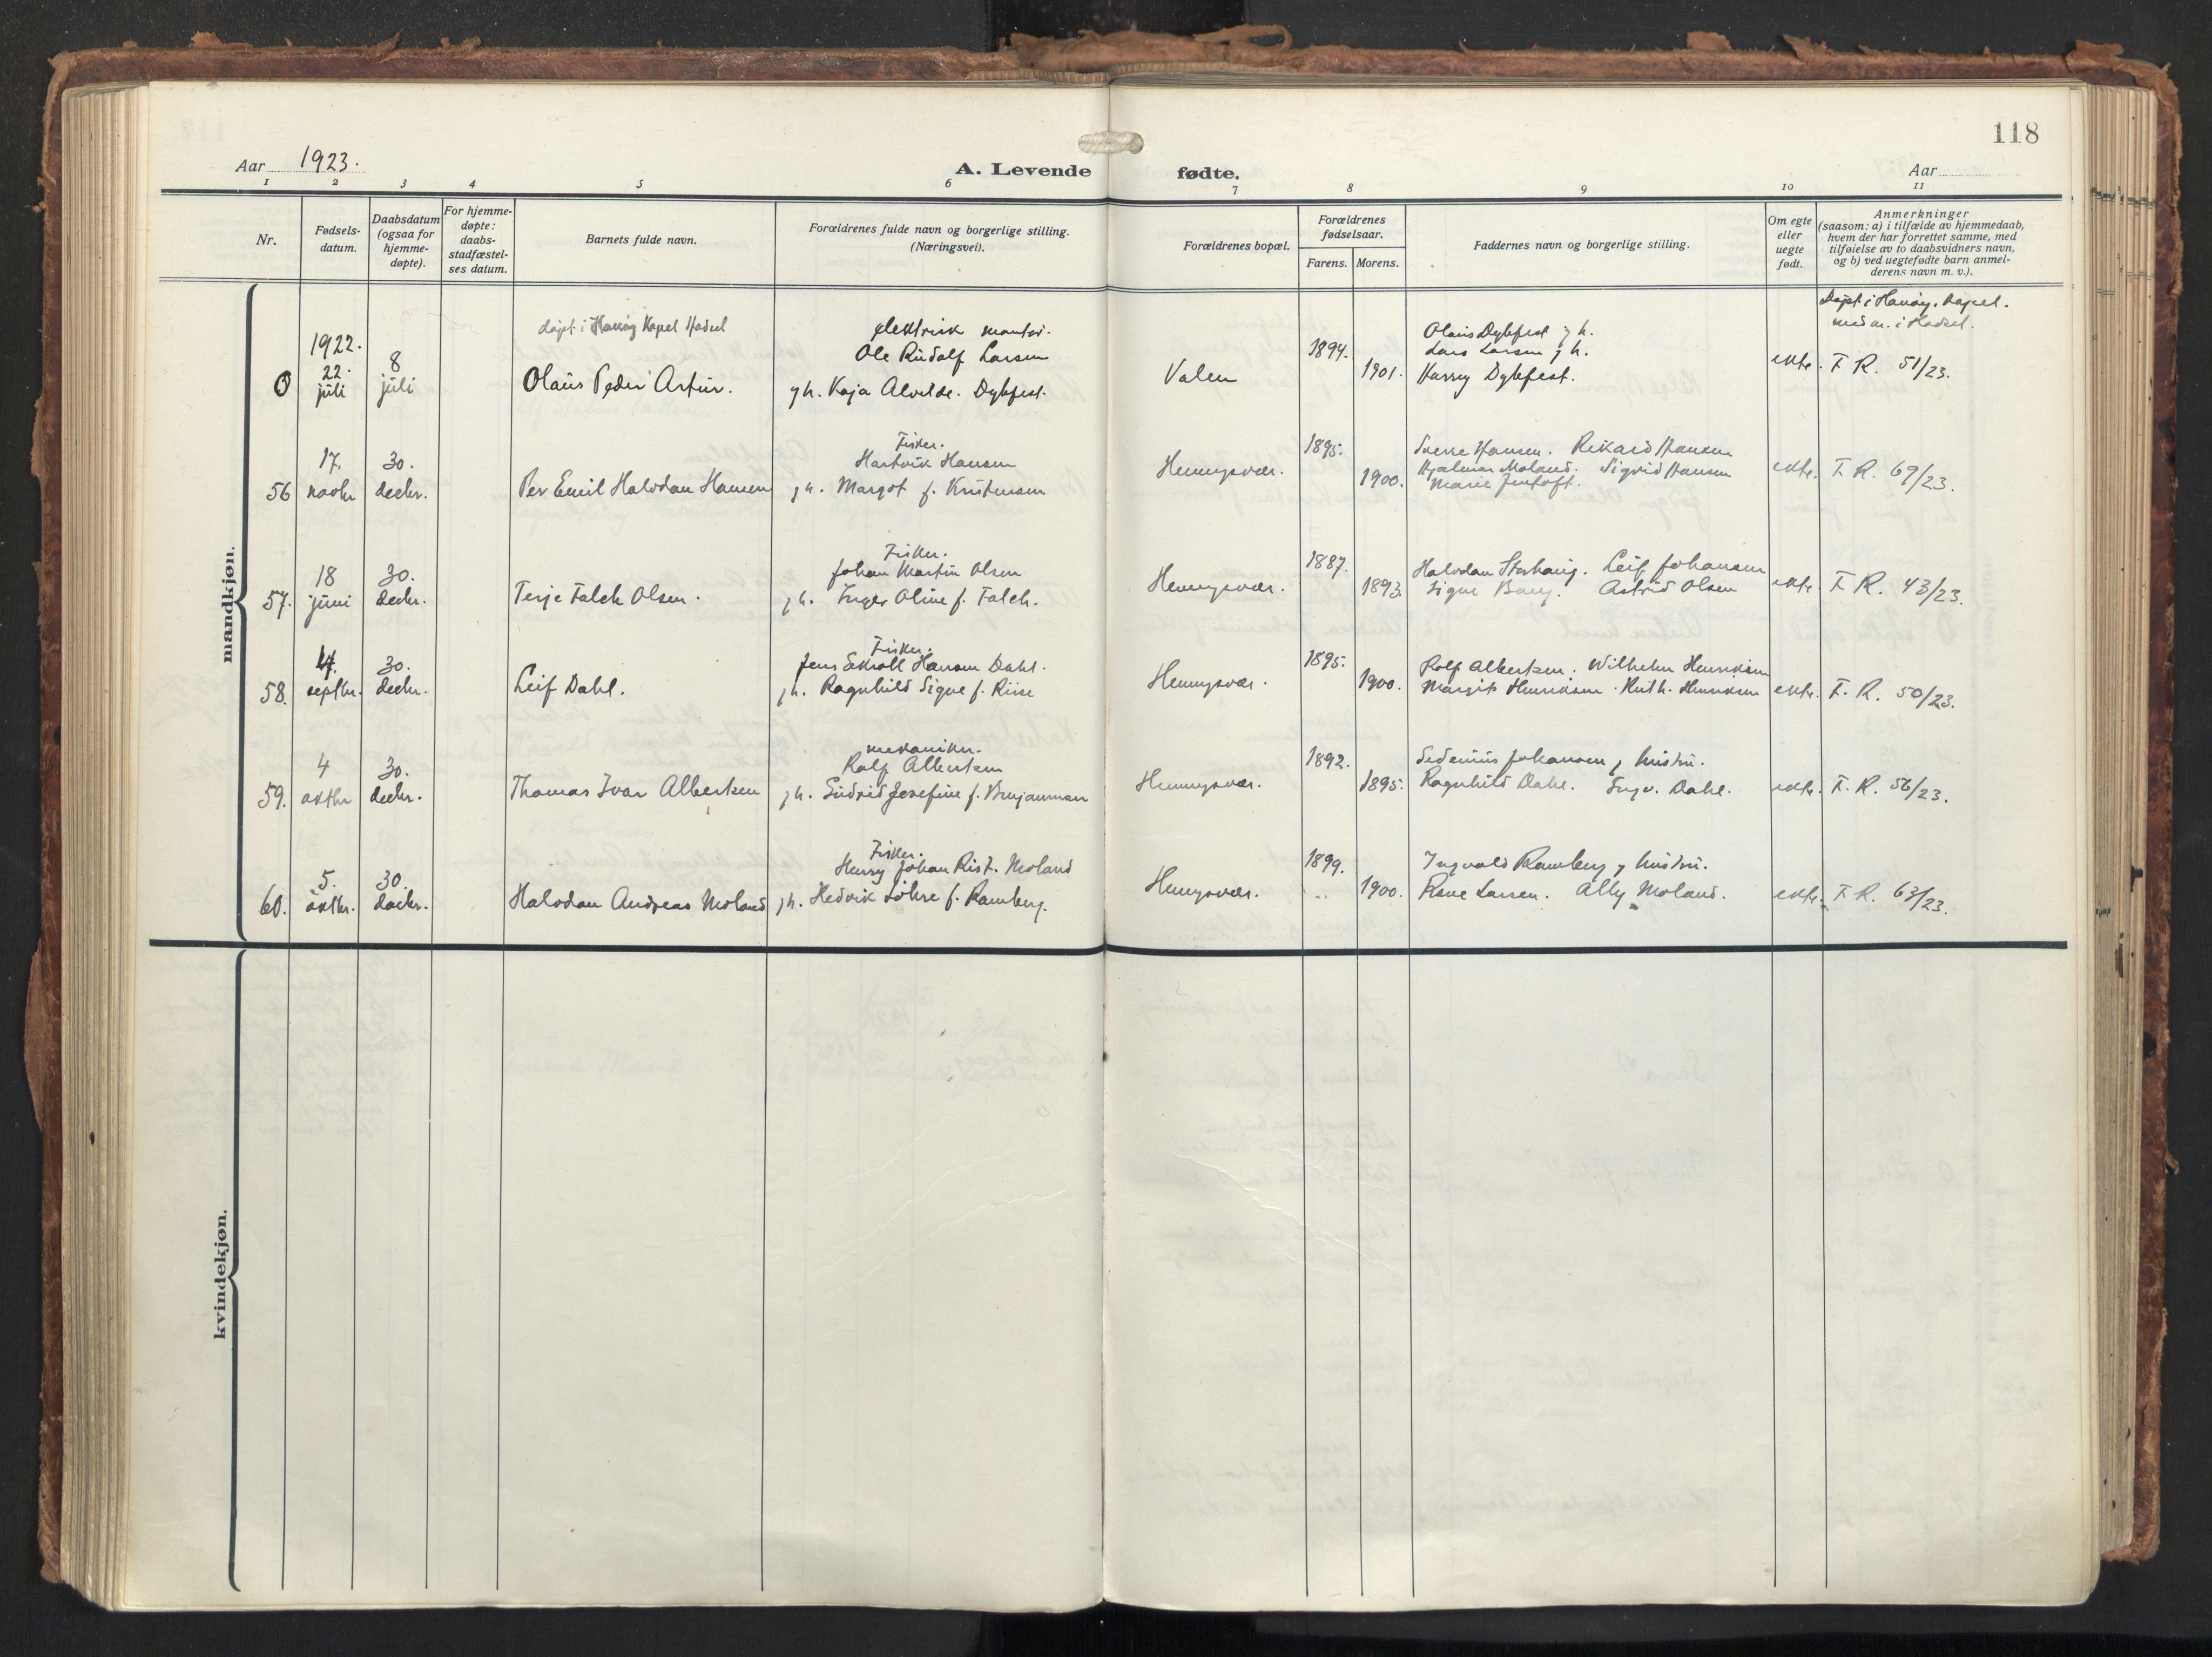 118
Aar 1923.
A. Levende fødte.
Aar
1 2 3 4 5 6 7 8 9 10 11
Nr.
Fødsels-
datum.
Daabsdatum
(ogsaa for
hjemme-
døpte).
For hjemme-
døpte:
daabs-
stadfæstel-
ses datum.
Barnets fulde navn.
Forældrenes fulde navn og borgerlige stilling.
(Næringsvei).
Forældrenes bopæl.
Forældrenes
fødselsaar.
Farens. Morens.
Faddernes navn og borgerlige stilling.
Om egte
eller
uegte
født.
Anmerkninger
(saasom: a) i tilfælde av hjemmedaab,
hvem der har forrettet samme, med
tilføielse av to daabsvidners navn,
og b) ved uegtefødte barn anmel-
derens navn m. v.).
mandkjøn.
0
1922.
22.
juli
8
juli
døpt i Kapel Hadsel
Olaüs Peder Artür.
elektrisk montør.
Ole Rudolf Larsen
g h. Kaja Alvilde. Dybfest.
Valen
1894.
1901.
Olaus Dybfest g h.
Lars Larsen g h.
Harry Dybfest.
ekte.
Døpt i Kapel.
i Hadsel.
F. R. 51/23.
56
17.
novbr
30.
decbr.
Per Emil Halvdan Hansen
Fisker.
Hartvik Hansen
g h. Margot f. Kristensen
Henningsvær.
1895.
1900.
Sverre Hansen. Rikard Hansen
Hjalmar Moland. Sigrid Hansen
Marie Jentoft.
ekte.
F. R. 69/23.
57.
18
juni
30.
decbr.
Terje Falch Olsen.
Fisker.
Johan Martin Olsen
g h. Inger Oline f. Falch.
Henningsvær.
1887.
1893.
Halvdan Leif Johansen
Signe Astrid Olsen
ekte.
F. R. 43/23.
58.
septbr.
30.
decbr.
Leif Dahl.
Fisker.
Jens Hansen Dahl.
g h. Ragnhild Signe f. Riise
Henningsvær.
1895.
1900.
Rolf Albertsen. Wilhelm Henriksen
Margit Henriksen. Ruth. Henriksen
ekte.
F. R. 50/23.
59.
4
oktbr
30.
decbr.
Thomas Ivar Albertsen
mekaniker.
Rolf Albertsen
g h. Gudrid Josefine f. Benjaminsen
Henningsvær.
1892.
1895.
Johansen g hustru.
Ragnhild Dahl. Ingv. Dahl.
ekte.
F. R. 56/23.
60.
5.
oktbr.
30.
decbr.
Halvdan Andreas Moland
Fisker.
Harry Johan Rist. Moland
g h. Hedvik f. Ramberg.
Henningsvær.
1899.
1900.
Ingvald Ramberg g hustru.
Larsen. Ally Moland.
ekte.
F. R. 63/23.
kvindekjøn.